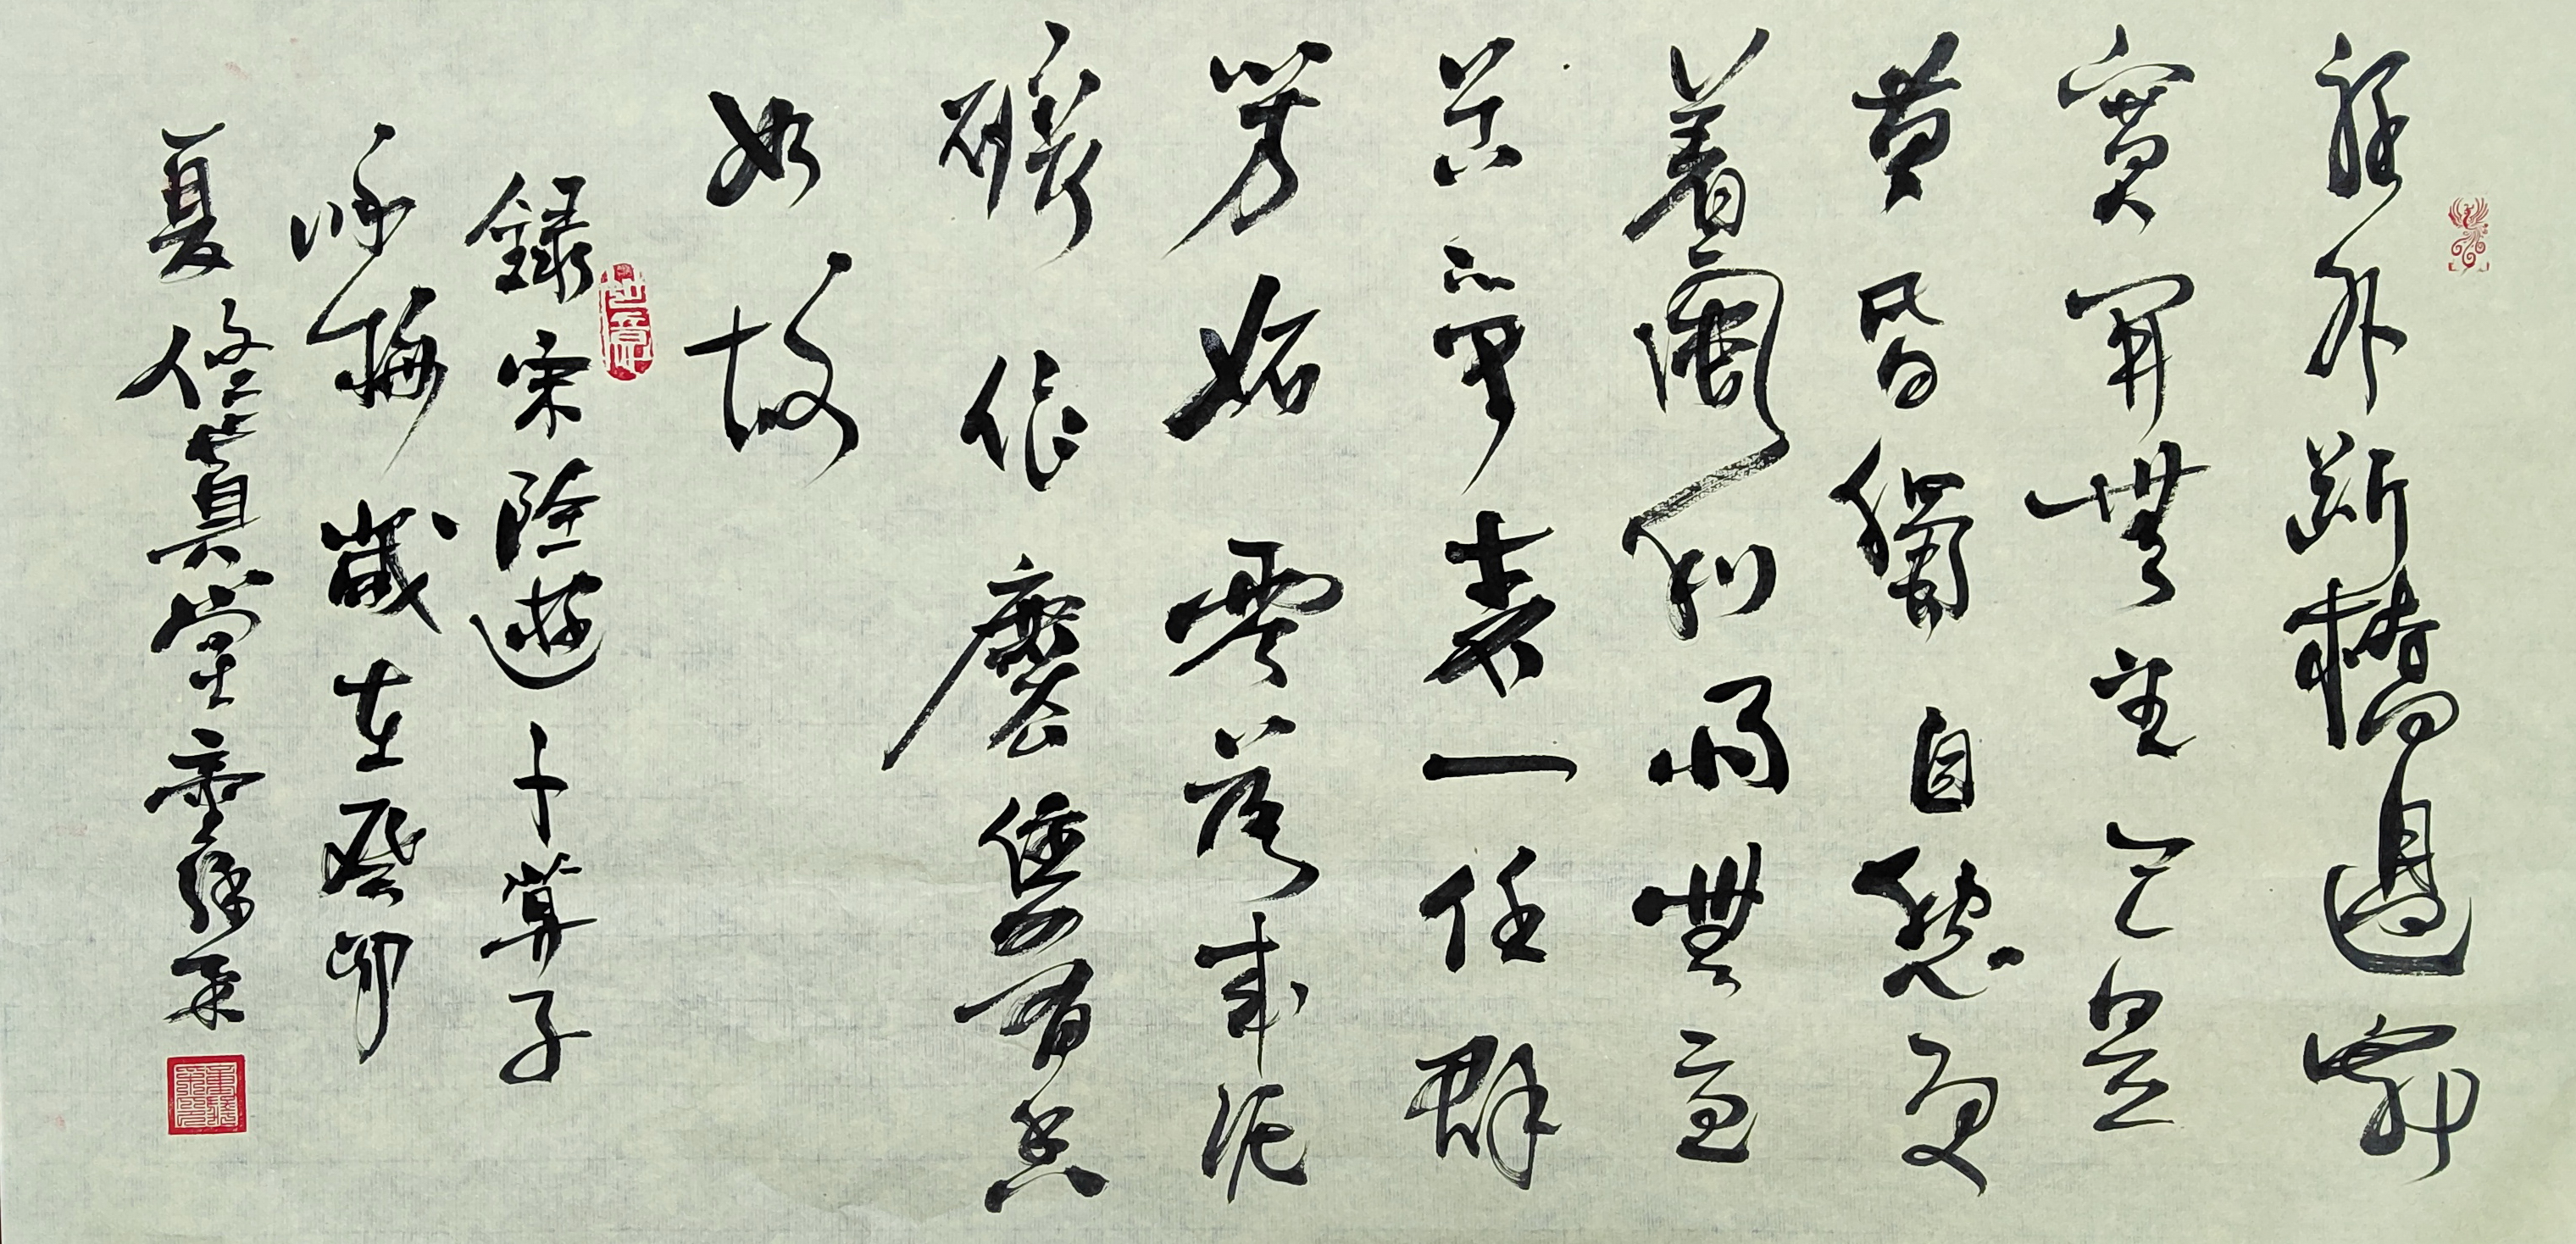 驛外斷橋邊寂
寞開無主已是
黃昏獨自愁更
着風和雨無意
苦爭春一任群
芳妬零落成泥
碾作塵隻有香
如故
錄宋陸遊卜算子
咏梅歲在癸卯
夏修真堂